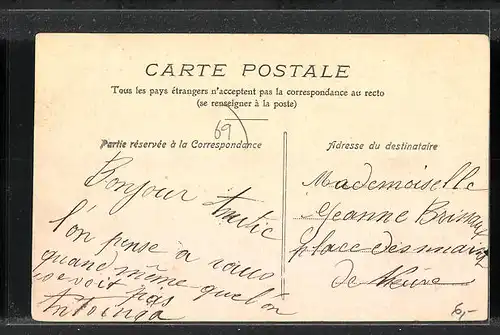 CARTE POSTALE
Tous les pays étrangers n'acceptent pas la correspondance au recto
(se renseigner à la poste)
69
Partie réservée à la Correspondance
Adresse du destinataire
Bonjour Amitié
l'on pense à vous
quand même que l'on
se voit pas
Mademoiselle
Jeanne
place des
de
6,-